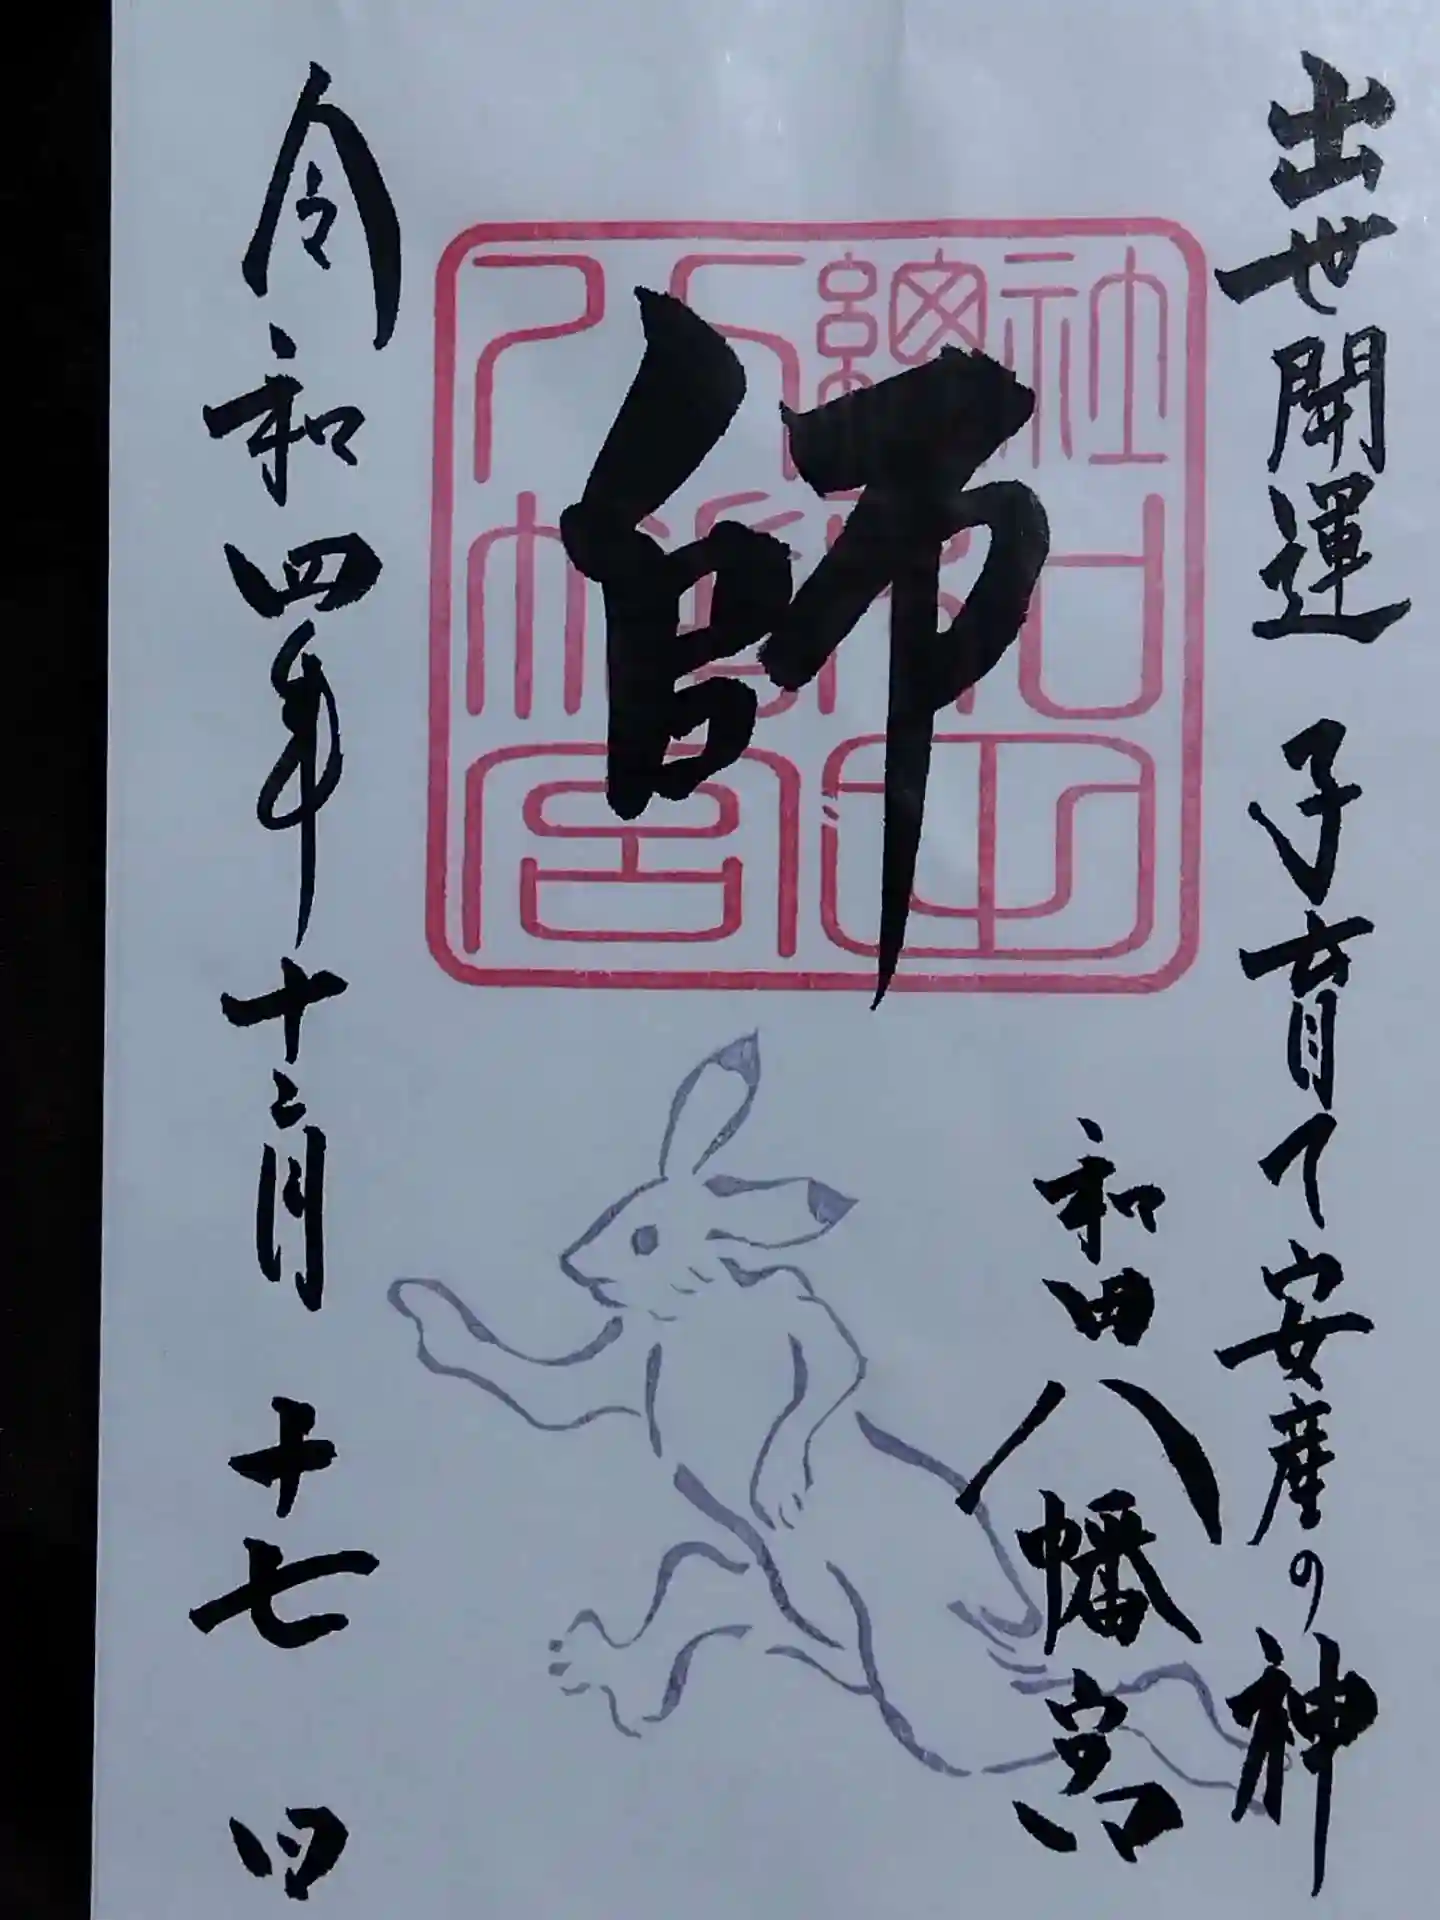 出世開運 子育て安産の神
和田八幡宮
師
總社
和田
八幡宮
令和四年十二月 十七 日